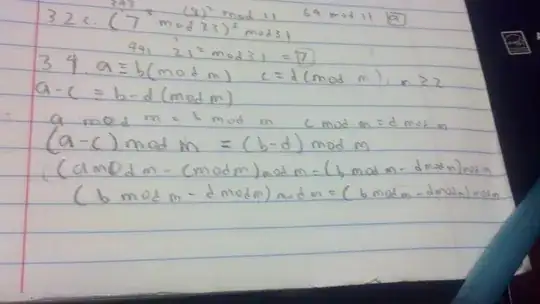 343 (8)² mod 11 64 mod 11 9
32c. (7³ mod 23)² mod 31
441 21² mod 31 = 7
34. a ≡ b (mod m) c = d (mod m), ≥ 2
a-c = b-d (mod m)
a mod m = b mod m c mod m = d mod m
(a-c) mod m = (b-d) mod m
(a mod m - c mod m) mod m = (b mod m - d mod m) mod m
(b mod m - d mod m) mod m = (b mod m - d mod m) mod m